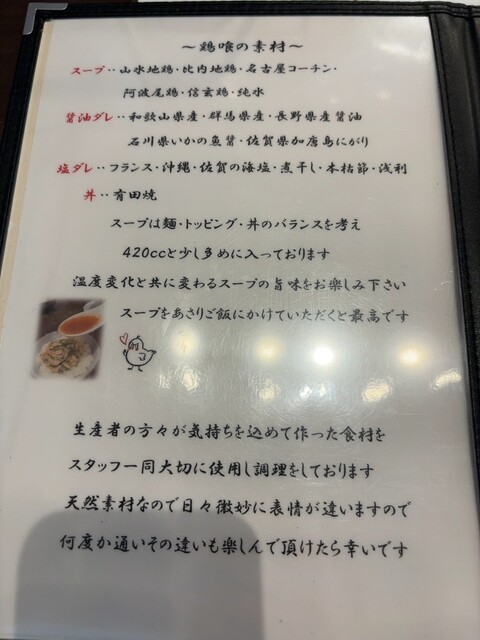 ～鶏喰の素材～
スープ‥山水地鶏・比内地鶏・名古屋コーチン・
阿波尾鶏・信玄鶏・純水
醤油ダレ‥和歌山県産・群馬県産・長野県産醤油
石川県いかの魚醤・佐賀県加唐島にがり
塩ダレ‥フランス・沖縄・佐賀の海塩・煮干し・本枯節・浅利
丼‥有田焼
スープは麺・トッピング・丼のバランスを考え
420ccと少し多めに入っております
温度変化と共に変わるスープの旨味をお楽しみ下さい
スープをあさりご飯にかけていただくと最高です
生産者の方々が気持ちを込めて作った食材を
スタッフ一同大切に使用し調理をしております
天然素材なので日々微妙に表情が違いますので
何度か通いその違いも楽しんで頂けたら幸いです